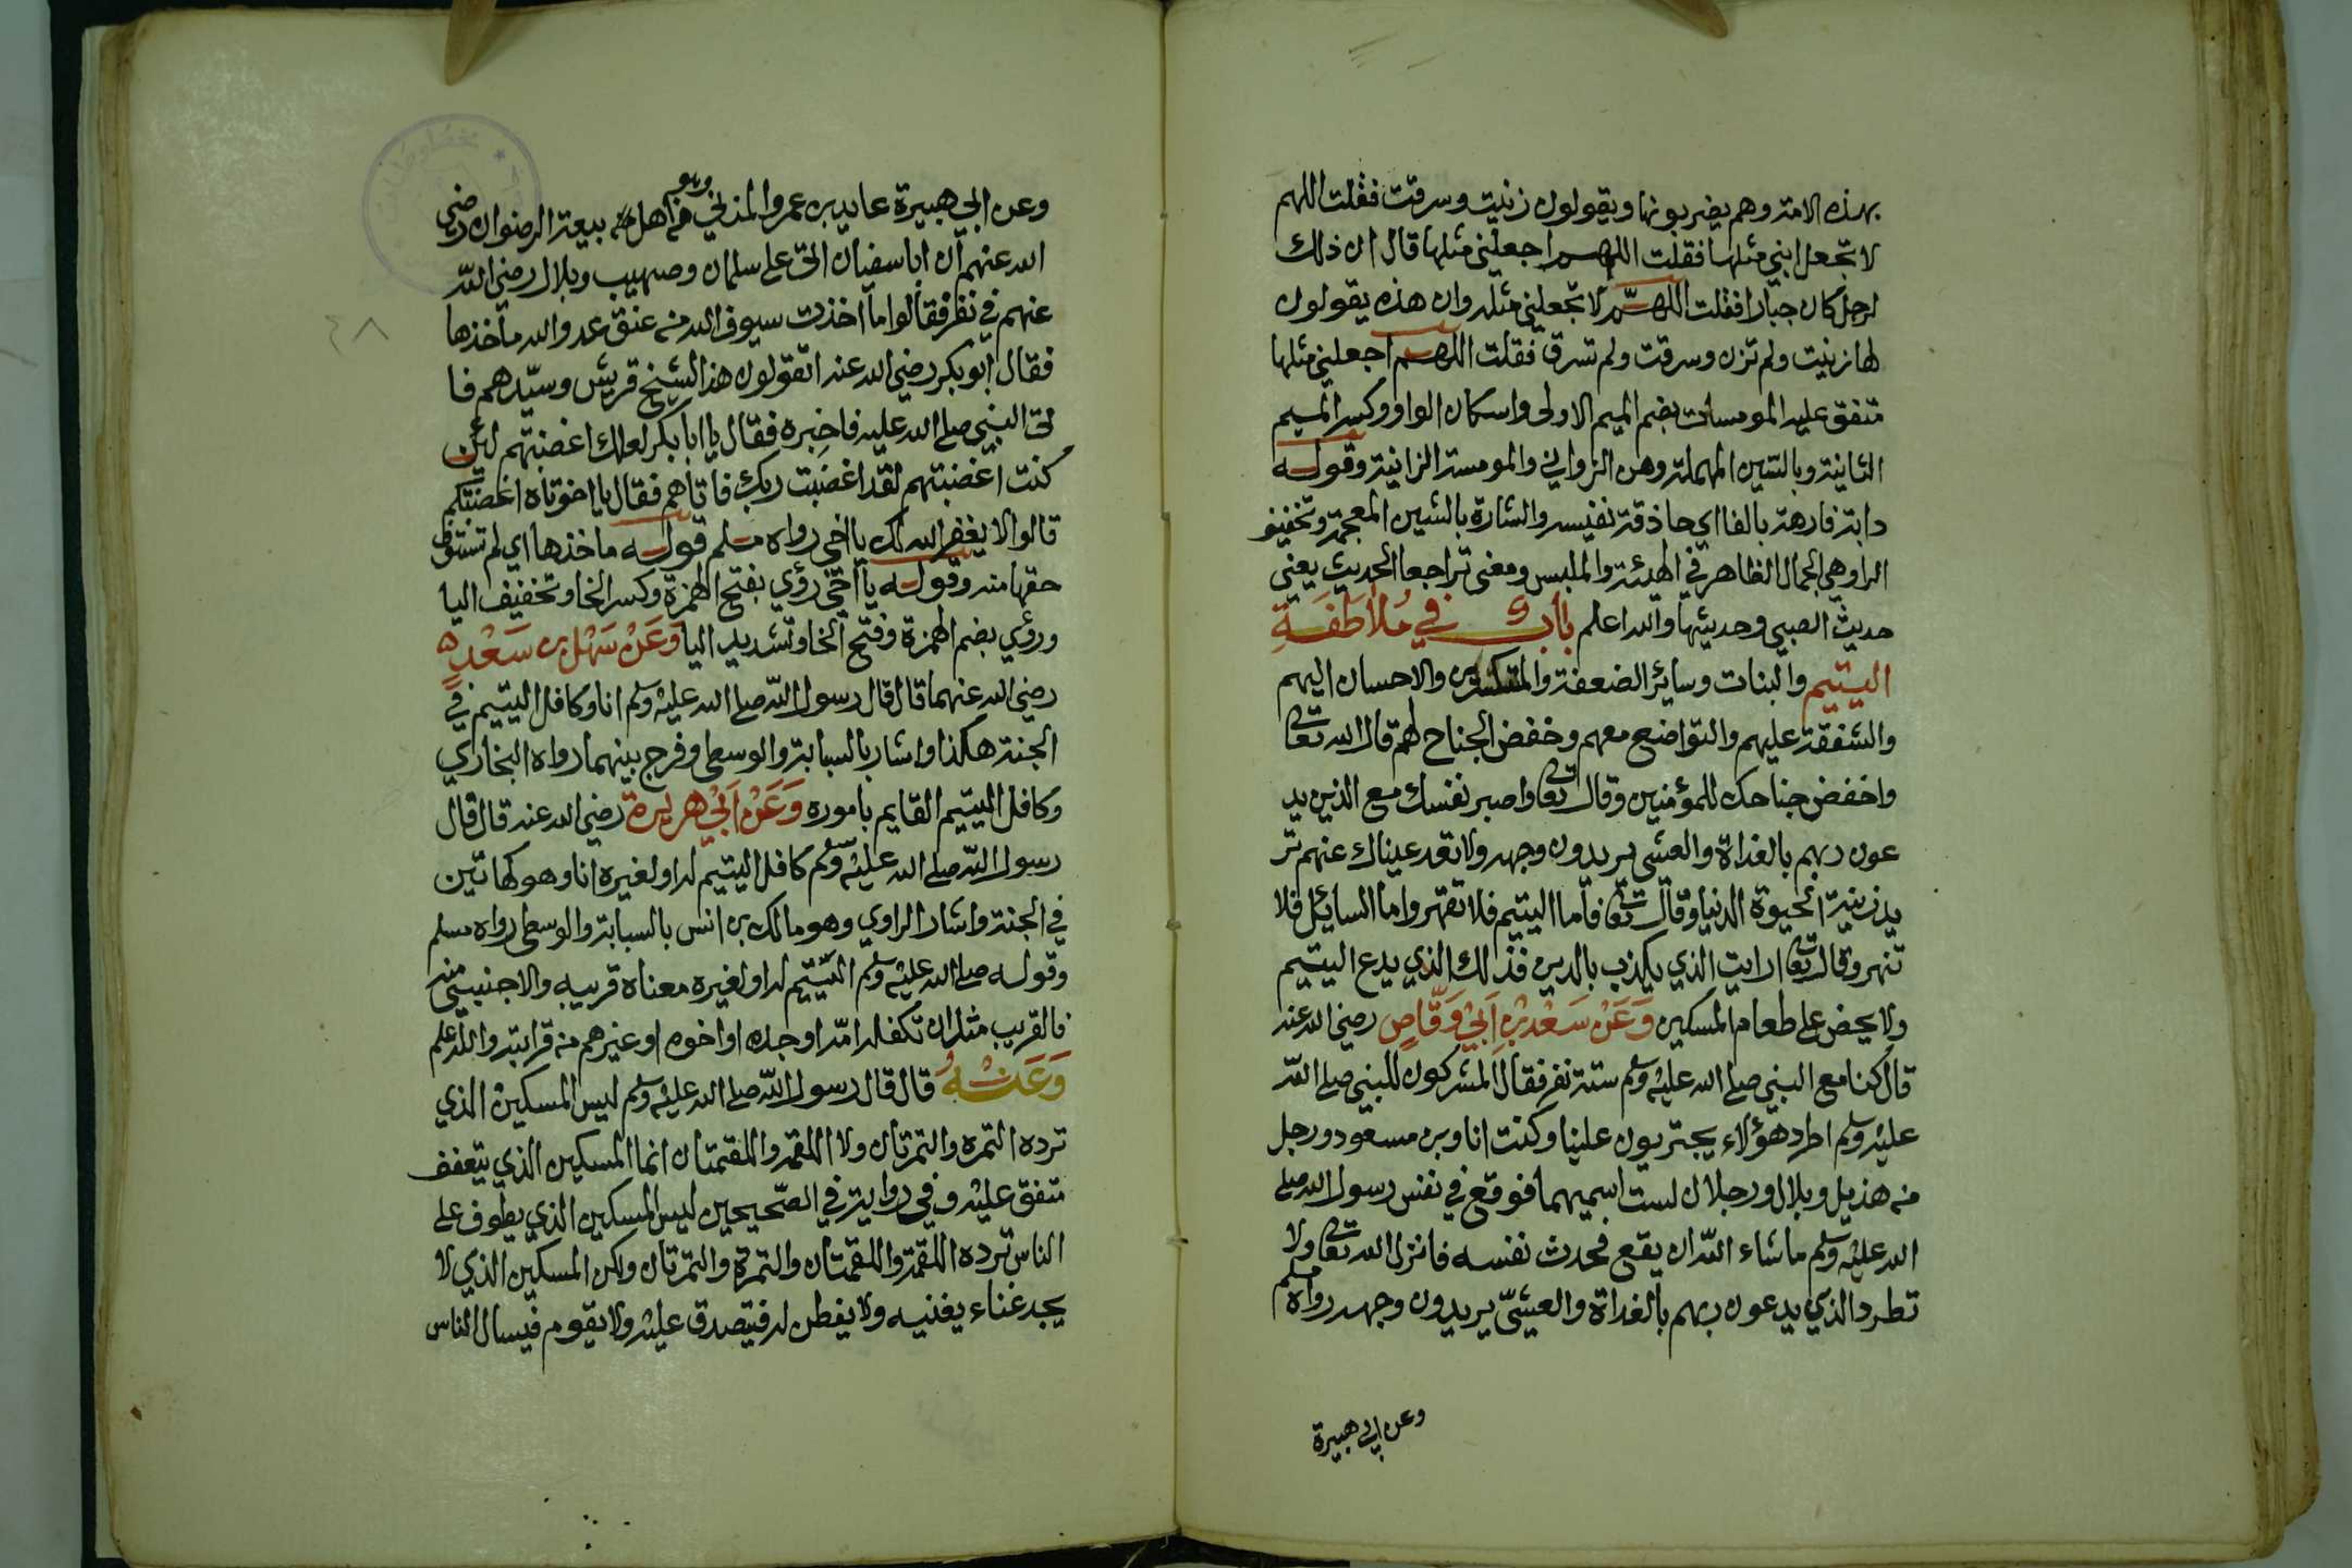 بهذه الامة وهم يضربونها ويقولون زنيت وسرقت فقلت اللهم
لا تجعل ابني مثلها فقلت اللهم اجعلني مثلها قال ان ذلك
لرجل كان جبارا فقلت اللهم لا تجعلني مثله وان هذه يقولون
لها زنيت ولم تزن وسرقت ولم تسرق فقلت اللهم اجعلني مثلها
متفق عليه المومسات بضم الميم الاولى واسكان الواو وكسر الميم
الثانية وبالسين المهملة وهن الزواني والمومسة الزانية وقوله
دابة فارهة بالفا اي حاذقة نفيسه والشارة بالشين المعجمة وتخفيف
الرا وهي الجمال الظاهر في الهيئة والملبس ومعنى تراجعا الحديث يعني
حديث الصبي وحديثها والله اعلم باب في ملاطفة
اليتيم والبنات وسائر الضعفة والمنكسرين والاحسان اليهم
والشفقة عليهم والتواضع معهم وخفض الجناح لهم قال الله تعالى
واخفض جناحك للمؤمنين وقال تعا واصبر نفسك مع الذين يد
عون ربهم بالغداة والعشي يريدون وجهه ولا تعد عيناك عنهم تر
يد زينة الحيوة الدنيا وقال تعا فاما اليتيم فلا تقهر واما السائل فلا
تنهر وقال تعا ارايت الذي يكذب بالدين فذلك الذي يدع اليتيم
ولا يحض على طعام المسكين وَعَنْ سَعْدِ بْنِ اَبِيْ وَقَّاصٍ رضي الله عنه
قال كنا مع النبي صلى الله عليه وسلم ستة نفر فقال المشركون للنبي صلى الله
عليه وسلم اطرد هؤلاء يجتريون علينا وكنت انا وبن مسعود ورجل
من هذيل وبلال ورجلان لست اسميهما فوقع في نفس رسول الله صلى
الله عليه وسلم ما شاء الله ان يقع فحدث نفسه فانزل الله تعالى ولا
تطرد الذي يدعون ربهم بالغداة والعشيّ يريدون وجهه رواه مسلم
وعن ابي هبيرة
وعن ابي هبيرة عايد بن عمرو المزني وهو من اهل بيعة الرضوان رضى
الله عنهم ان ابا سفيان اتى على سلمان وصهيب وبلال رضي الله
عنهم في نفر فقالوا ما اخذت سيوف الله من عنق عدو الله مأخذها
فقال ابو بكر رضي الله عنه اتقولون هذا لشيخ قريش وسيّدهم فا
تى النبي صلى الله عليه فاخبره فقال يا ابا بكر لعلك اغضبتهم لئن
كنت اغضبتهم لقد اغضبت ربك فاتاهم فقال يا اخوتاه اغضبتكم
قالوا لا يغفر الله لك يا اخى رواه مسلم قوله ماخذها اي لم تستوف
حقها منه وقوله يا اخي رؤي بفتح الهمزة وكسر الخا وتخفيف اليا
ورؤي بضم الهمزة وفتح الخا وتشديد اليا وَعَنْ سَهْل بن سَعْدٍ
رضي الله عنهما قال قال رسول الله صلى الله عليه وسلم انا وكافل اليتيم في
الجنة هكذا واشار بالسبابة والوسطى وفرج بينهما رواه البخاري
وكافل اليتيم القايم باموره وَعَنْ اَبِيْ هريرة رضي الله عنه قال قال
رسول الله صلى الله عليه وسلم كافل اليتيم له او لغيره انا وهو كهاتين
في الجنة واشار الراوي وهو مالك بن انس بالسبابة والوسطى رواه مسلم
وقوله صلى الله عليه وسلم اليتيم له او لغيره معناه قريبه والاجنبي منه
فالقريب مثل ان تكفله امّه او جده او اخوه او غيرهم من قرابته والله اعلم
وَعَنْهُ قال قال رسول الله صلى الله عليه وسلم ليس المسكين الذي
ترده التمره والتمرتان ولا اللقمة واللقمتان انما المسكين الذي يتعفف
متفق عليه وفي رواية في الصّحيحين ليس المسكين الذي يطوف على
الناس ترده اللقمة واللقمتان والتمرة والتمرتان ولكن المسكين الذي لا
يجد غناء يغنيه ولا يفطن له فيتصدق عليه ولا يقوم فيسال الناس